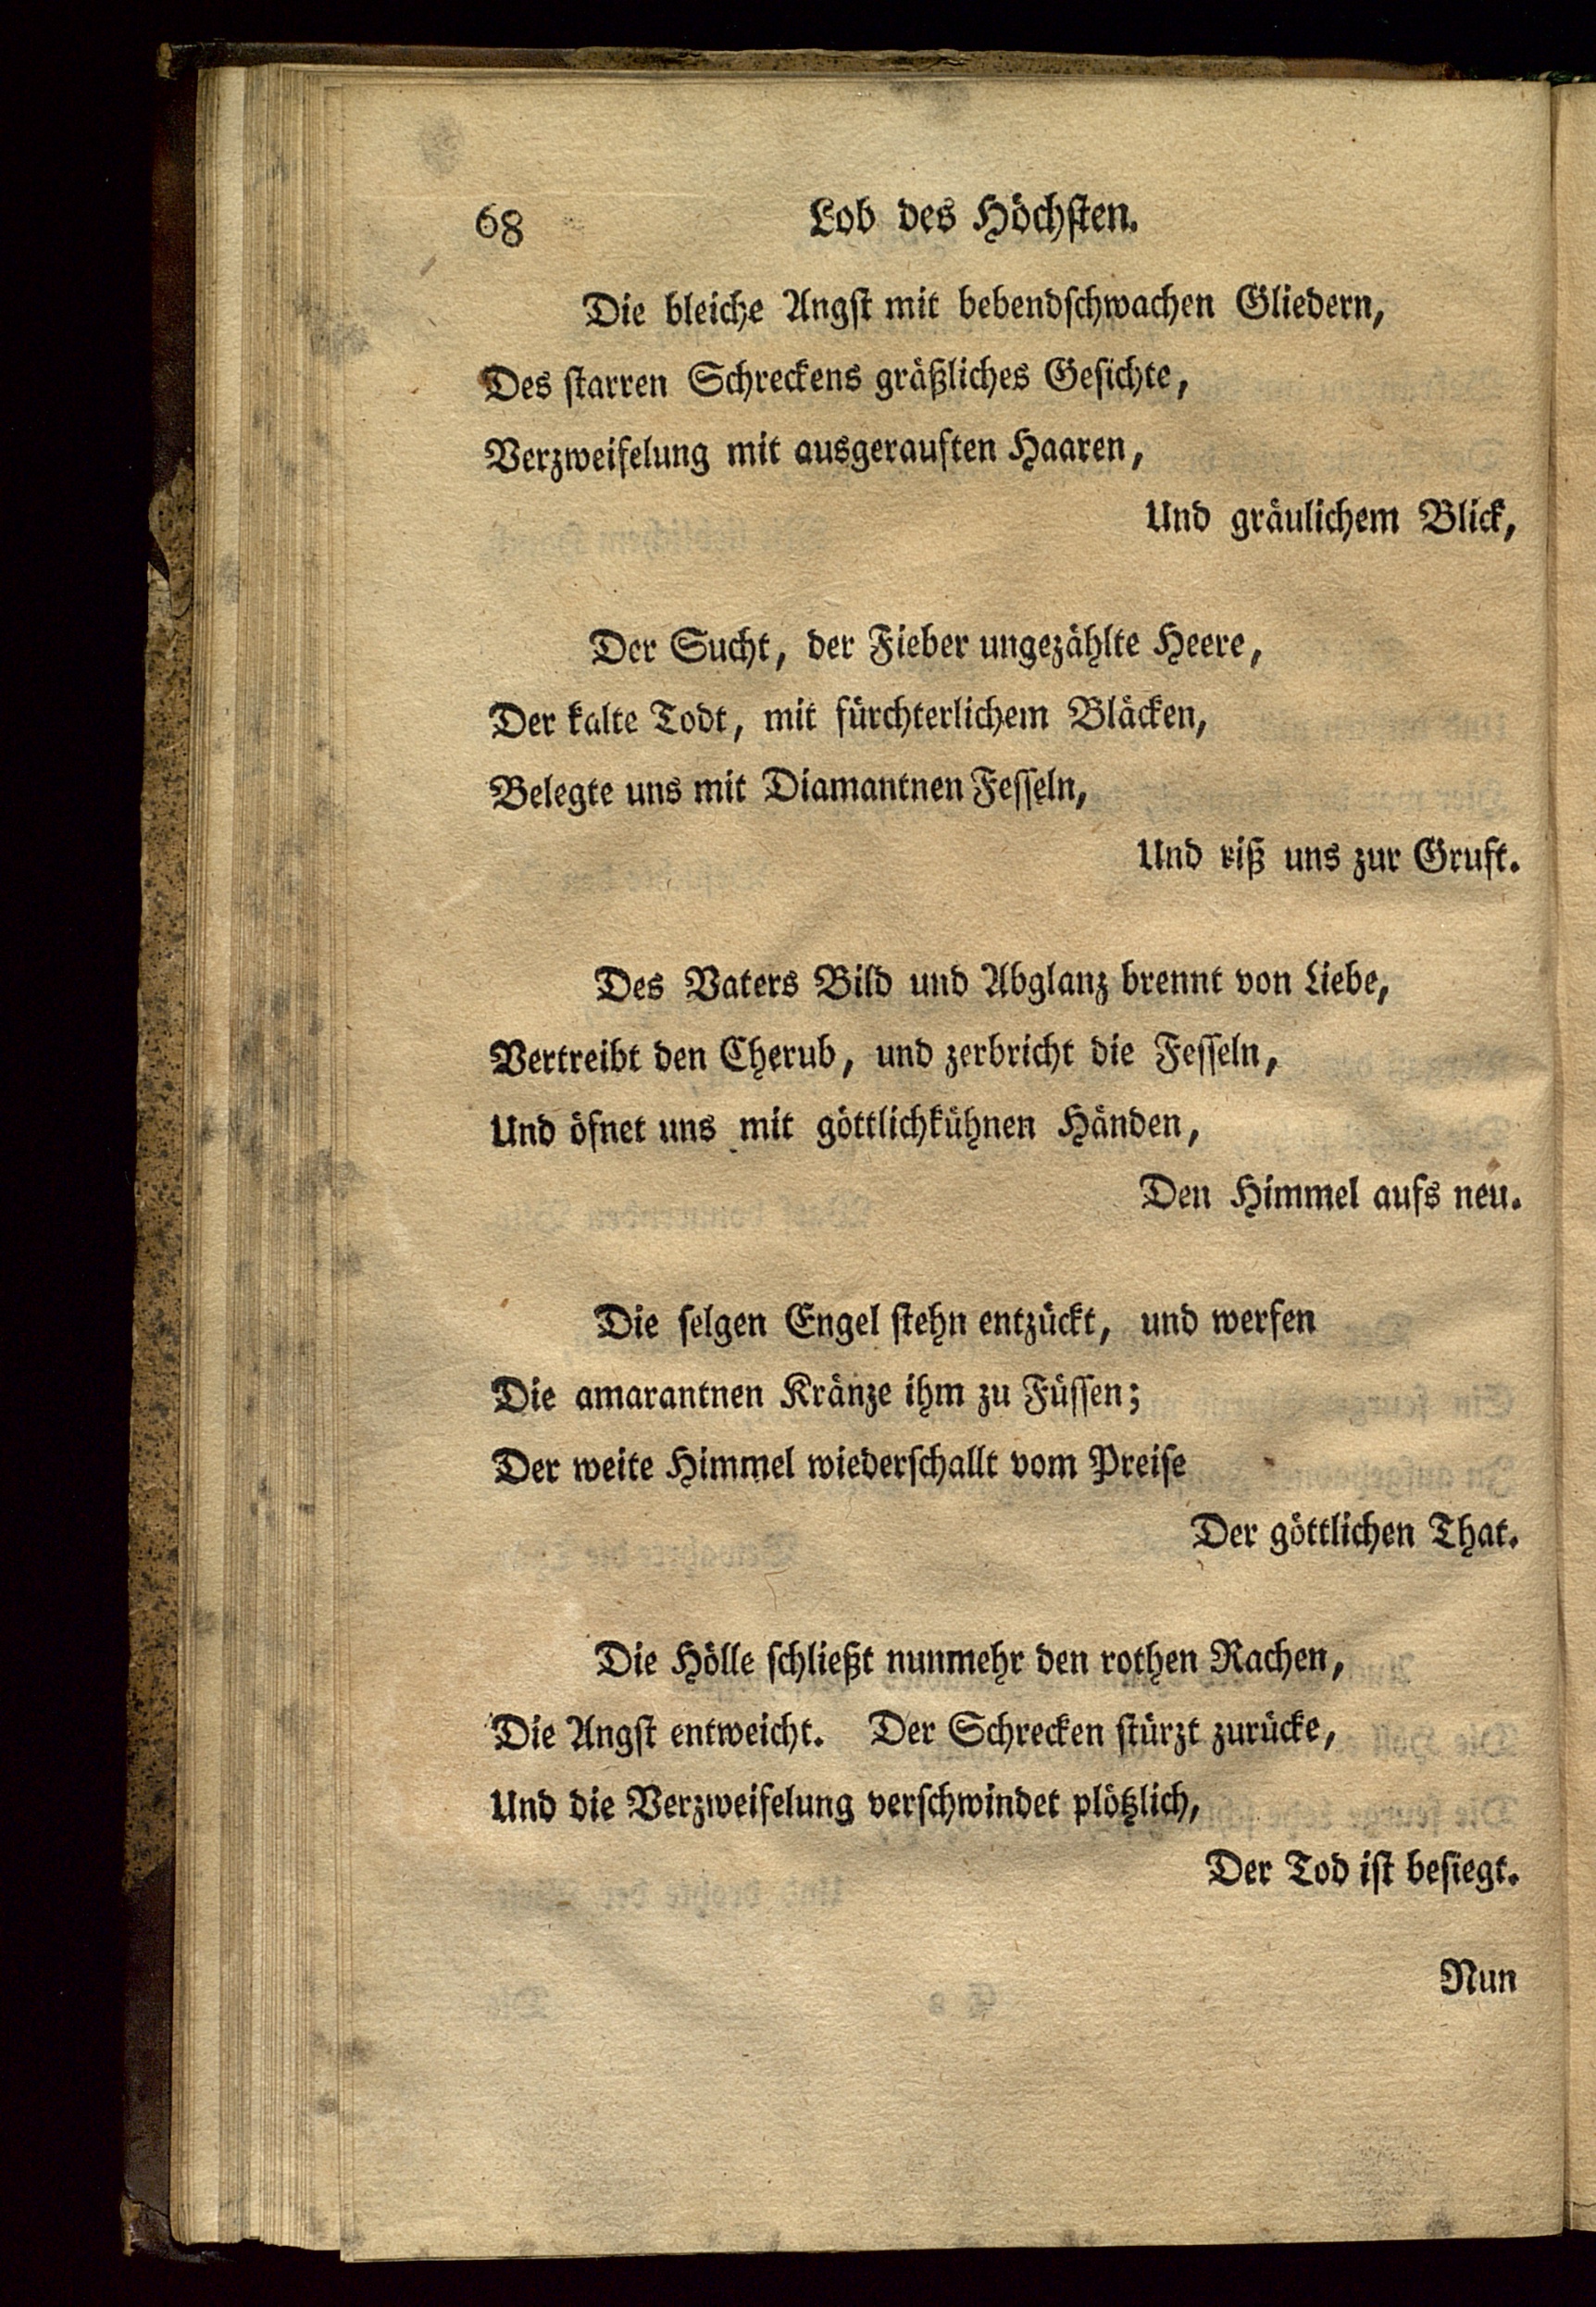 68 Lob des Höchsten.
Die bleiche Angst mit bebendschwachen Gliedern,
Des starren Schreckens gräßliches Gesichte,
Verzweifelung mit ausgerauften Haaren,
Und gräulichem Blick,
Der Sucht, der Fieber ungezählte Heere,
Der kalte Todt, mit fürchterlichem Bläcken,
Belegte uns mit Diamantnen Fesseln,
Und riß uns zur Gruft.
Des Vaters Bild und Abglanz brennt von Liebe,
Vertreibt den Cherub, und zerbricht die Fesseln,
Und öfnet uns mit göttlichkühnen Händen,
Den Himmel aufs neu.
Die selgen Engel stehn entzückt, und werfen
Die amarantnen Kränze ihm zu Füssen;
Der weite Himmel wiederschallt vom Preise
Der göttlichen That.
Die Hölle schließt nunmehr den rothen Rachen,
Die Angst entweicht. Der Schrecken stürzt zurücke,
Und die Verzweifelung verschwindet plötzlich,
Der Tod ist besiegt.
Nun